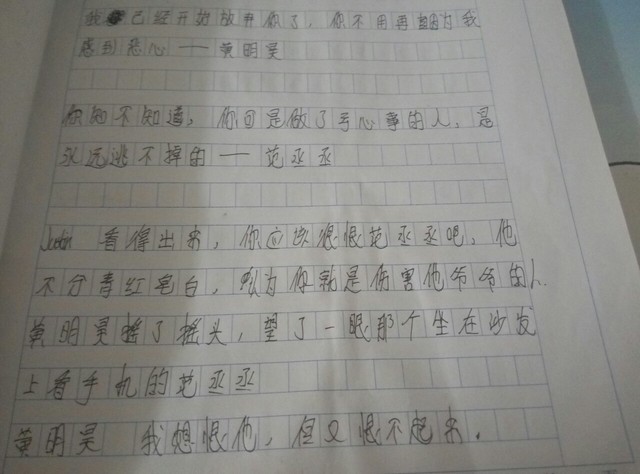 我已经开始放弃你了，你不用再因为我
感到恶心——黄明昊
你知不知道，你可是做了亏心事的人，是
永远逃不掉的——范丞丞
Justin 看得出来，你应该很恨范丞丞吧，他
不分青红皂白，以为你就是伤害他爷爷的人.
黄明昊摇了摇头，望了一眼那个坐在沙发
上看手机的范丞丞
黄明昊 我想恨他，但又恨不起来.